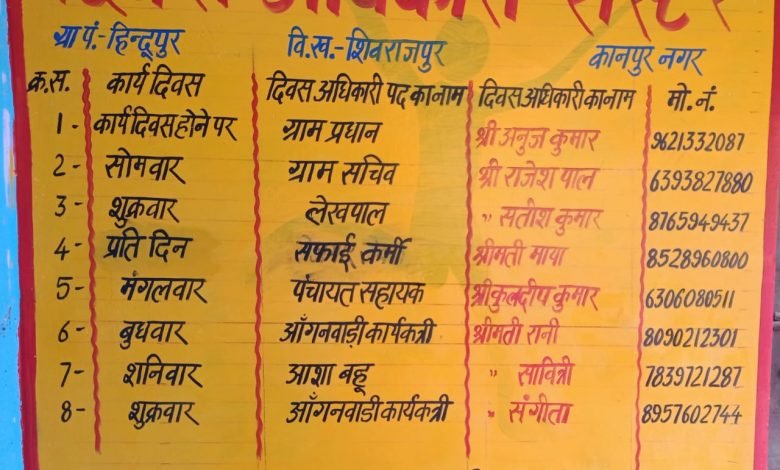 ग्रा पं.- हिन्दूपुर वि.ख.- शिवराजपुर कानपुर नगर
क्र.स. कार्य दिवस दिवस अधिकारी पद का नाम दिवस अधिकारी का नाम मो. नं.
1 - कार्य दिवस होने पर ग्राम प्रधान श्री अनुज कुमार 9621332087
2 - सोमवार ग्राम सचिव श्री राजेश पाल 6393827880
3 - शुक्रवार लेखपाल " सतीश कुमार 8765949437
4 - प्रति दिन सफाई कर्मी श्रीमती माया 8528960800
5 - मंगलवार पंचायत सहायक श्री कुलदीप कुमार 6306080511
6 - बुधवार आँगनवाड़ी कार्यकत्री श्रीमती रानी 8090212301
7 - शनिवार आशा बहू " सावित्री 7839721287
8 - शुक्रवार आँगनवाडी कार्यकत्री " संगीता 8957602744